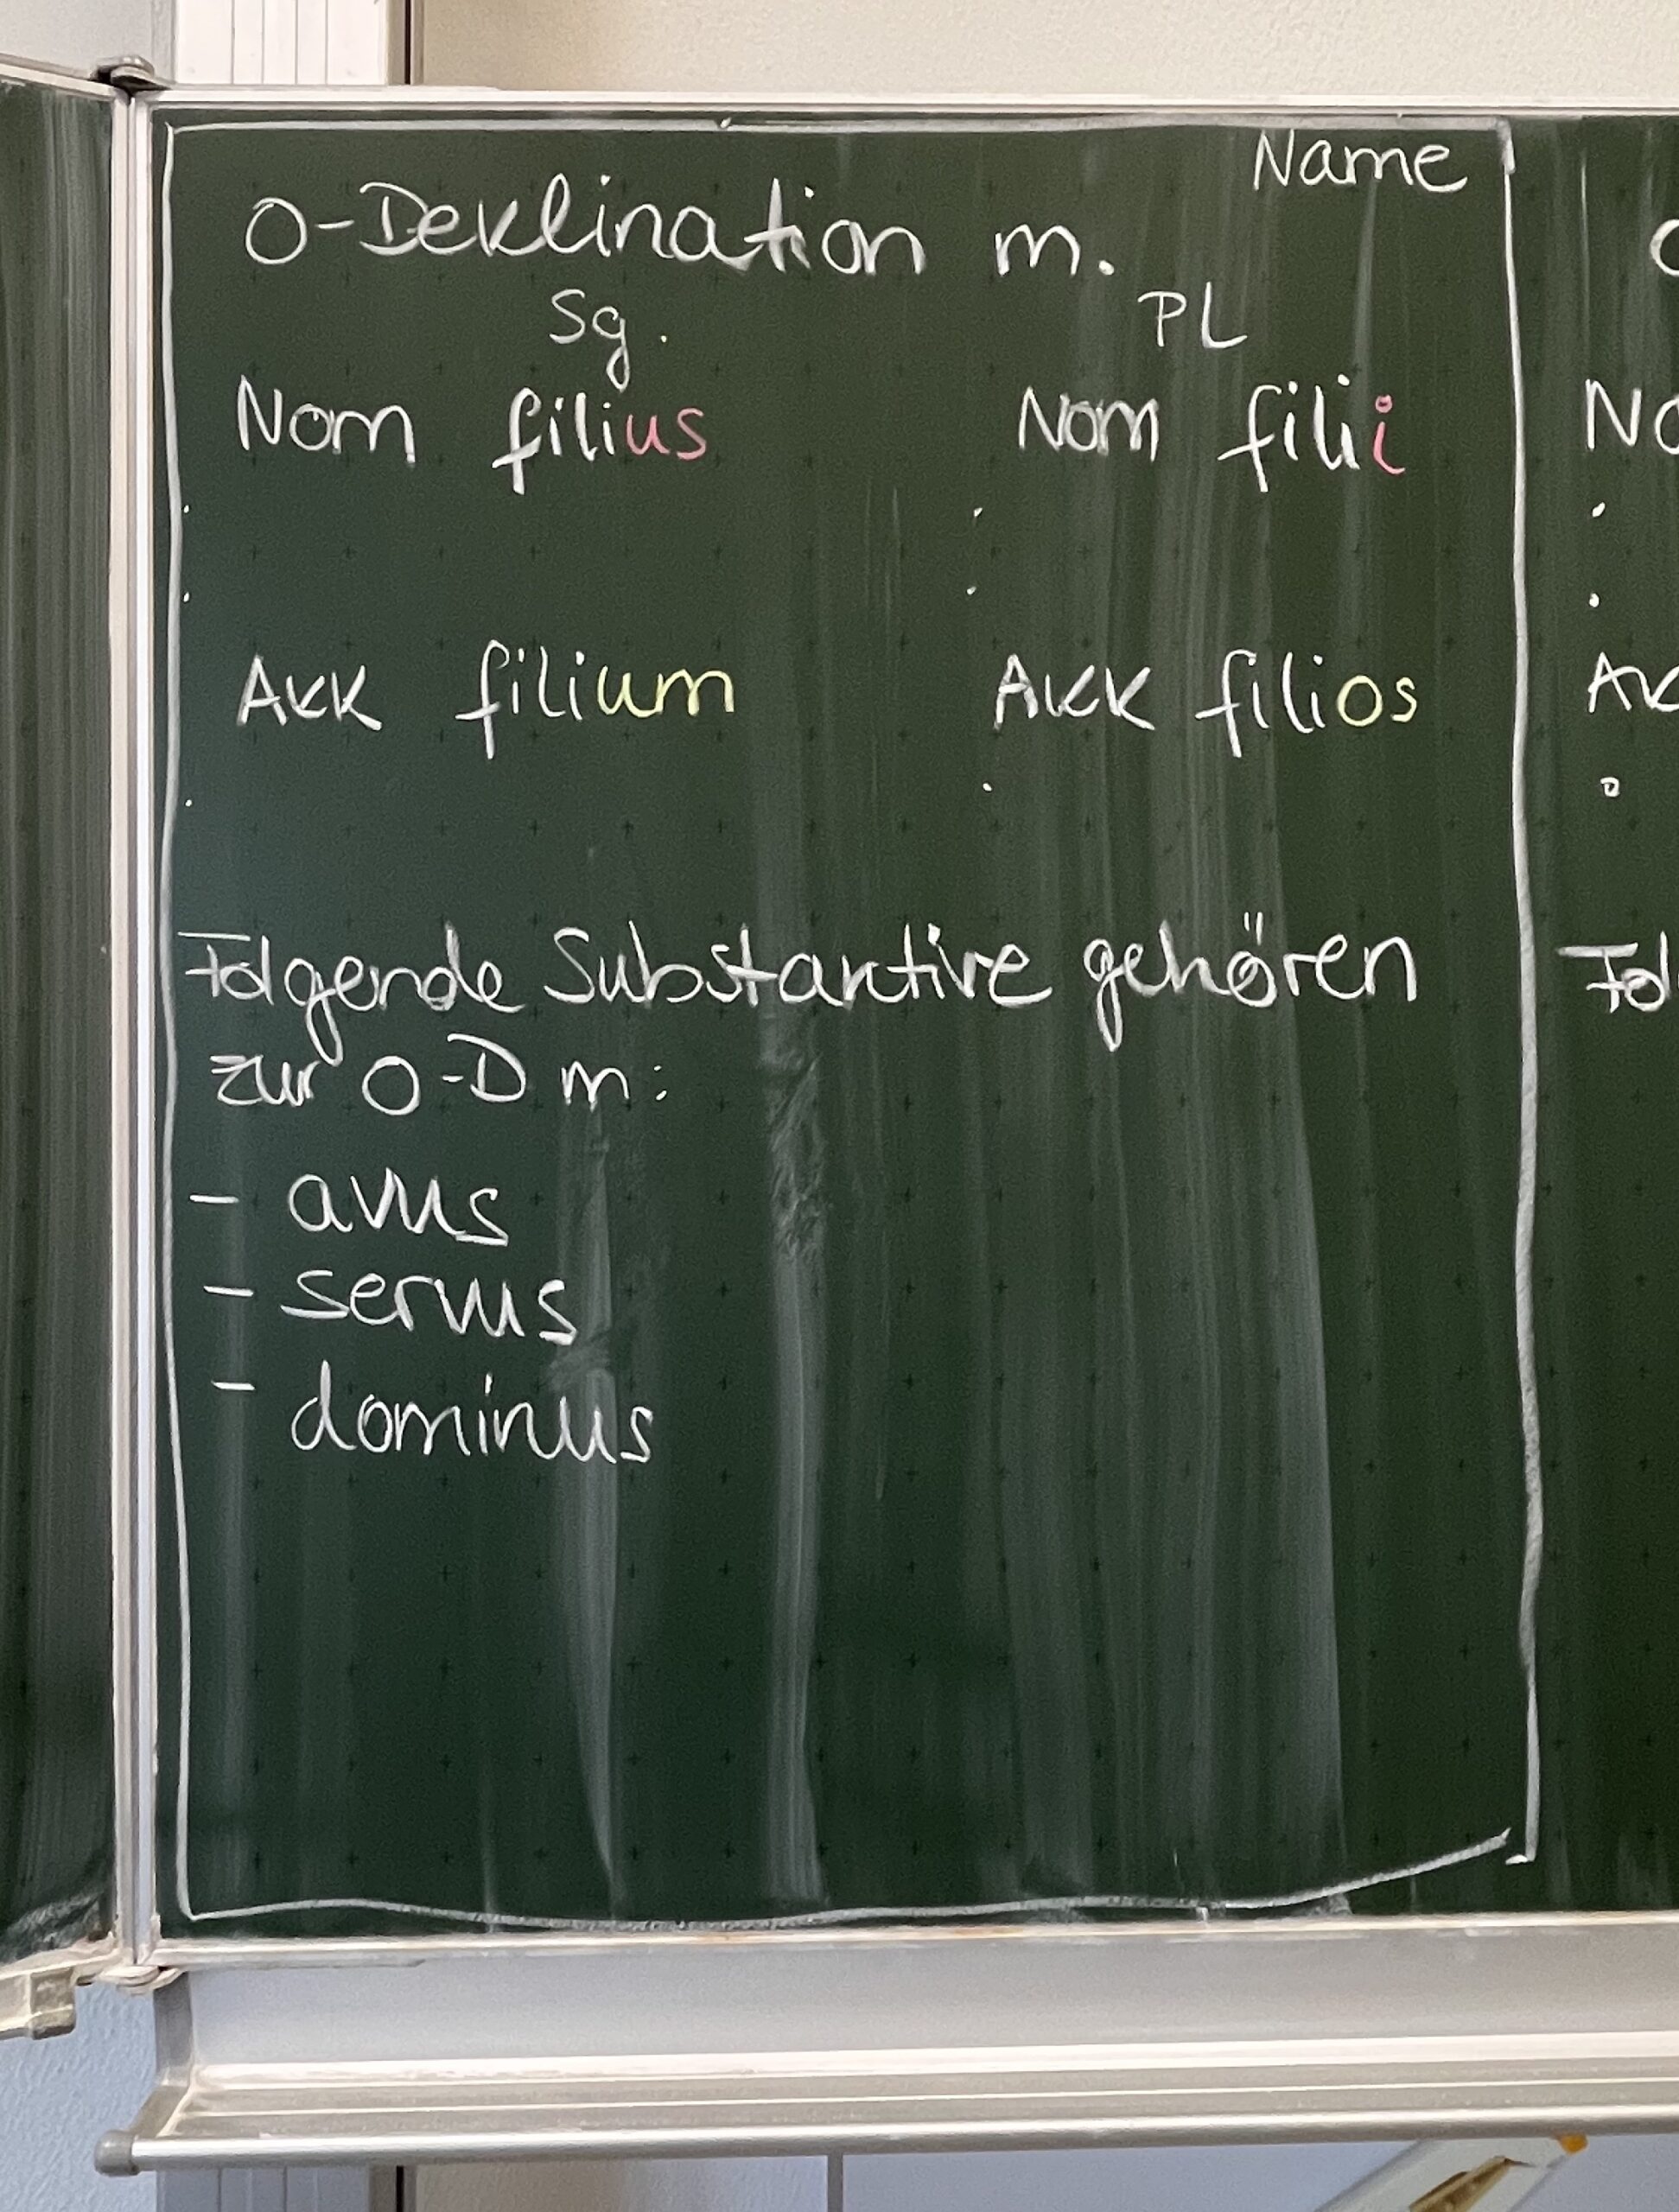 Name
O-Deklination m.
Sg. PL
Nom filius Nom filii
Akk filium Akk filios
Folgende Substantive gehören
zur O-D m:
- avus
- servus
- dominus